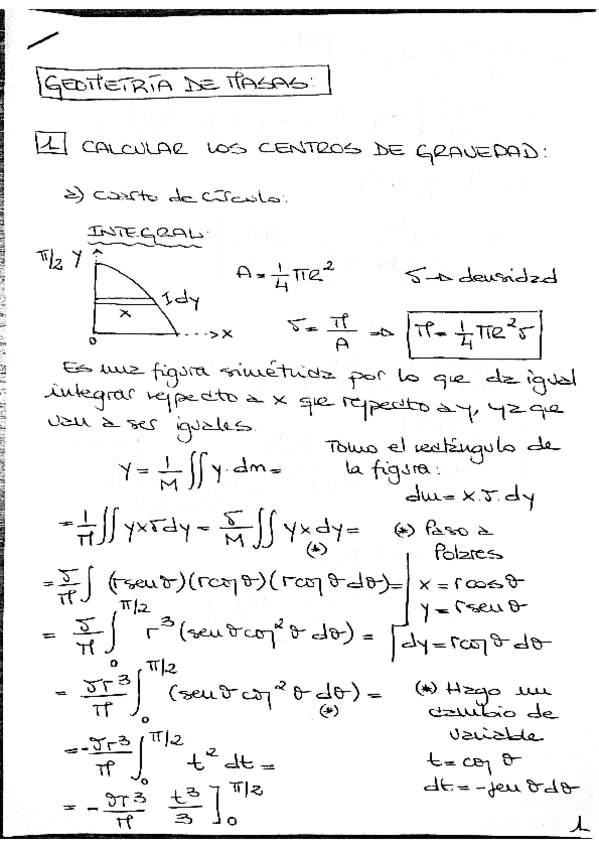 GEOMETRÍA DE MASAS:
1 CALCULAR LOS CENTROS DE GRAVEDAD:
a) cuarto de círculo:
INTEGRAL:
π/2 Y
A = 1/4 πR² σ → densidad
I dy
x
0 → X
σ = M/A ⇒ M = 1/4 πR²σ
Es una figura simétrica por lo que da igual
integrar respecto a x que respecto a y, ya que
van a ser iguales.
Tomo el rectángulo de
la figura:
Y = 1/M ∬ y·dm =
dm = x·σ·dy
= 1/M ∬ yxσdy = σ/M ∬ yxdy = (*) Paso a
(*) Polares
= σ/M ∫ (r sen θ)(r cos θ)(r cos θ dθ) = x = r cos θ
y = r sen θ
= σ/M ∫₀^π/2 r³(sen θ cos² θ dθ) = dy = r cos θ dθ
= σr³/M ∫₀^π/2 (sen θ cos² θ dθ) = (*) Hago un
(*) cambio de
variable
= -σr³/M ∫₀^π/2 t² dt = t = cos θ
dt = -sen θ dθ
= -σr³/M t³/3 ]₀^π/2
1